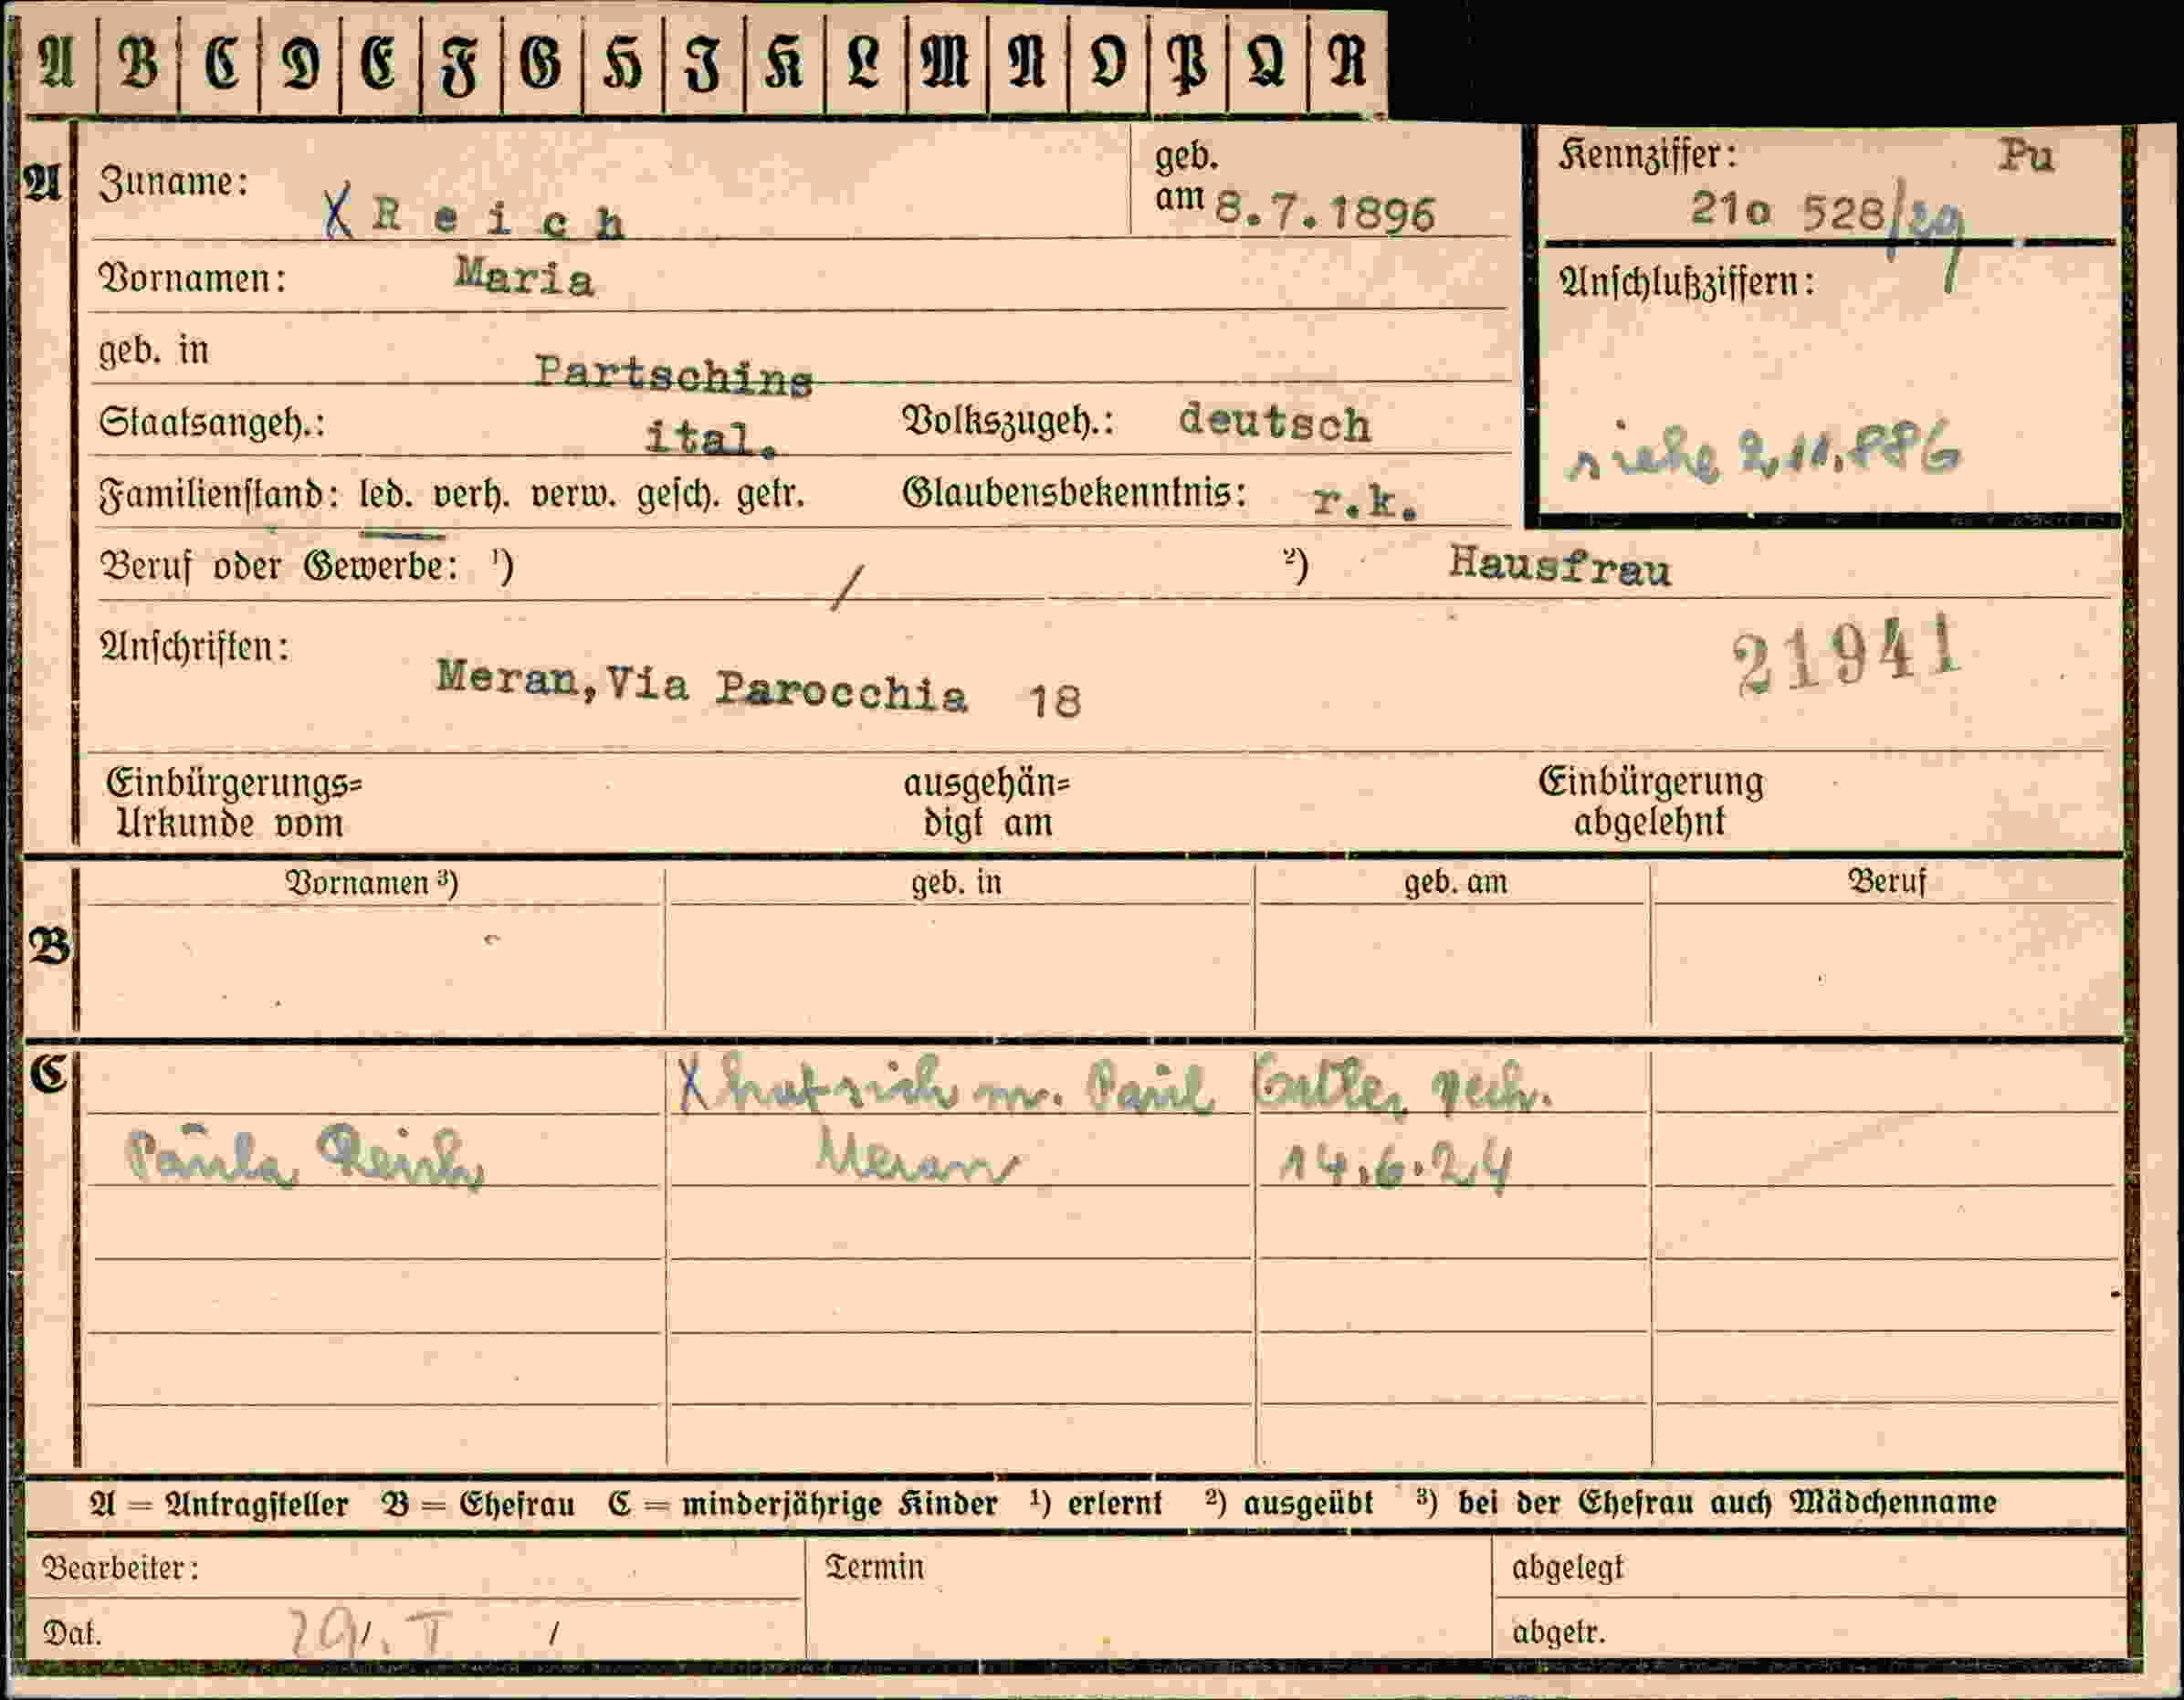 A B C D E F G H I K L M N O P Q R
A Zuname: X Reich geb. am 8.7.1896 Kennziffer: Pu
21o 528/29
Vornamen: Maria Anschlußziffern:
geb. in Partschins
Staatsangeh.: ital. Volkszugeh.: deutsch siehe 2.11.886
Familienstand: led. verh. verw. gesch. getr. Glaubensbekenntnis: r.k.
Beruf oder Gewerbe: ¹) / ²) Hausfrau
Anschriften: 21941
Meran, Via Parocchia 18
Einbürgerungs= ausgehän= Einbürgerung
Urkunde vom digt am abgelehnt
B Vornamen ³) geb. in geb. am Beruf
C X hat sich m. Paul verh.
Paula Reich Meran 14.6.24
A = Antragsteller B = Ehefrau C = minderjährige Kinder ¹) erlernt ²) ausgeübt ³) bei der Ehefrau auch Mädchenname
Bearbeiter: Termin abgelegt
Dat. / abgetr.